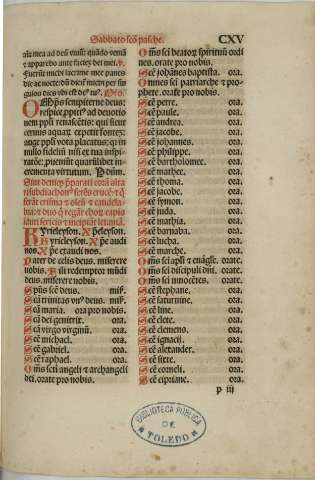 Sabbato scō pasche. CXV
aīa mea ad deū viuū: quādo veniā
⁊ apparebo ante faciez dei mei. ℣.
Fuerūt michi lacrime mee panes
die ac nocte: dū dicit̄ michi per
singulos dies vbi est
Omps̄ sempiterne deus:
respice ppici⁹ ad deuotio
nem ppli renascētis: qui sicut
ceruus aquaꝝ expetit fontez:
⁊
erūt crisma ⁊ oleū ⁊ candela
Kyrieleyson. Xpeleyson.
Kyrieleyson. Xpe audi
nos. Xpe exaudi nos.
Pater de celis deus, miserere
nobis. Fili redemptor mūdi
deus, miserere nobis.
Sps̄ scē deus. mis̄.
Sca trinitas vn⁹ deus. mis̄.
Sca maria. ora pro nobis.
Sca dei genitrix. ora.
Sca virgo virginū. ora.
Scē michael. ora.
Scē gabriel. ora.
Scē raphael. ora.
Om̄s scti angeli ⁊ archangeli
dei. orate pro nobis.
Om̄s sci beatoꝝ spirituū ordi
nes. orate pro nobis.
Scē johānes baptista. ora.
Omnes sci patriarche ⁊ pro
phete. orate pro nobis.
Scē petre. ora.
Scē paule. ora.
Scē andrea. ora.
Scē jacobe. ora.
Scē johannes. ora.
Scē philippe. ora.
Scē bartholomee. ora.
Scē mathee. ora.
Scē thoma. ora.
Scē jacobe. ora.
Scē symon. ora.
Scē juda. ora.
Scē mathia. ora.
Scē barnaba. ora.
Scē lucha. ora.
Scē marche. ora.
Om̄s sci apli ⁊ euāgel̄e. orate.
Om̄s sci discipuli dn̄i. orate.
Om̄s sci innocētes. orate.
Scē stephane. ora.
Scē saturnine. ora.
Scē line. ora.
Scē clete. ora.
Scē clemens. ora.
Scē ignacij. ora.
Scē alexander. ora.
Scē sixte. ora.
Scē corneli. ora.
Scē cipriane. ora.
p iij
BIBLIOTECA PÚBLICA
DE
TOLEDO